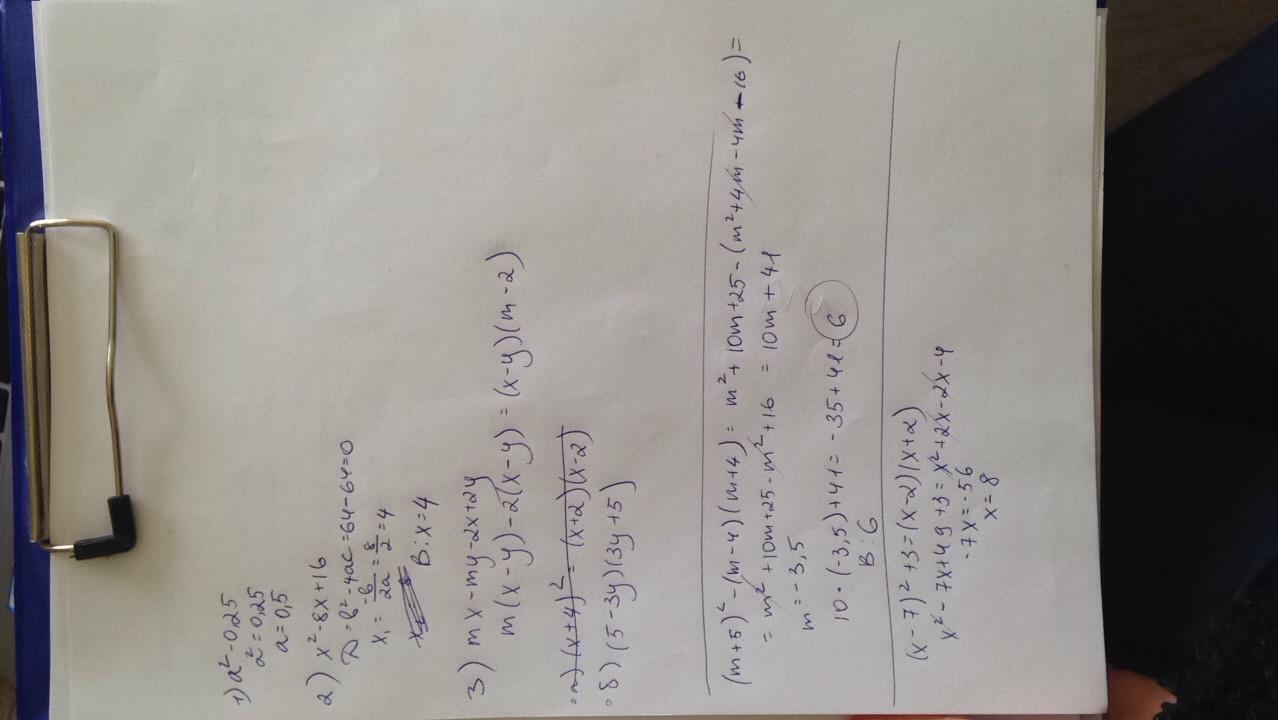 1) a² - 0,25
a² = 0,25
a = 0,5
2) x² - 8x + 16
D = b² - 4ac = 64 - 64 = 0
x₁ = -b/2a = 8/2 = 4
B: x = 4
3) mx - my - 2x + 2y
m(x - y) - 2(x - y) = (x - y)(m - 2)
a) (x + 4)² = (x + 2)(x - 2)
8) (5 - 3y)(3y + 5)
(m + 5)² - (m - 4)(m + 4) = m² + 10m + 25 - (m² + 4m - 4m - 16) =
= m² + 10m + 25 - m² + 16 = 10m + 41
m = -3,5
10 · (-3,5) + 41 = -35 + 41 = 6
B: 6
(x - 7)² + 3 = (x - 2)(x + 2)
x² - 7x + 49 + 3 = x² + 2x - 2x - 4
-7x = -56
x = 8